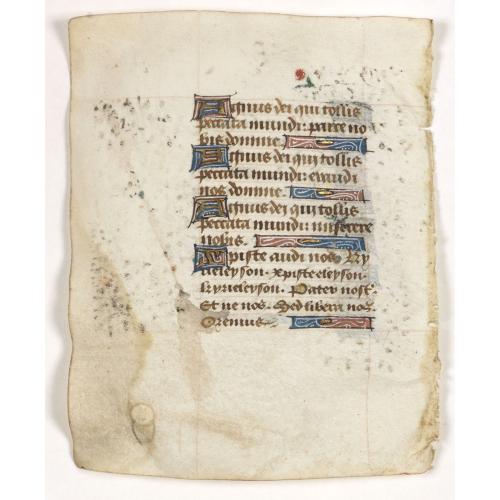 Agnus dei qui tollis
peccata mundi: parce no
bis domine.
Agnus dei qui tollis
peccata mundi: exaudi
nos domine.
Agnus dei qui tollis
peccata mundi: miserere
nobis.
Xpiste audi nos Ky
rieleyson. Xpiste eleyson
kyrieleyson. Pater nost.
Et ne nos. Sed libera nos.
Oremus.